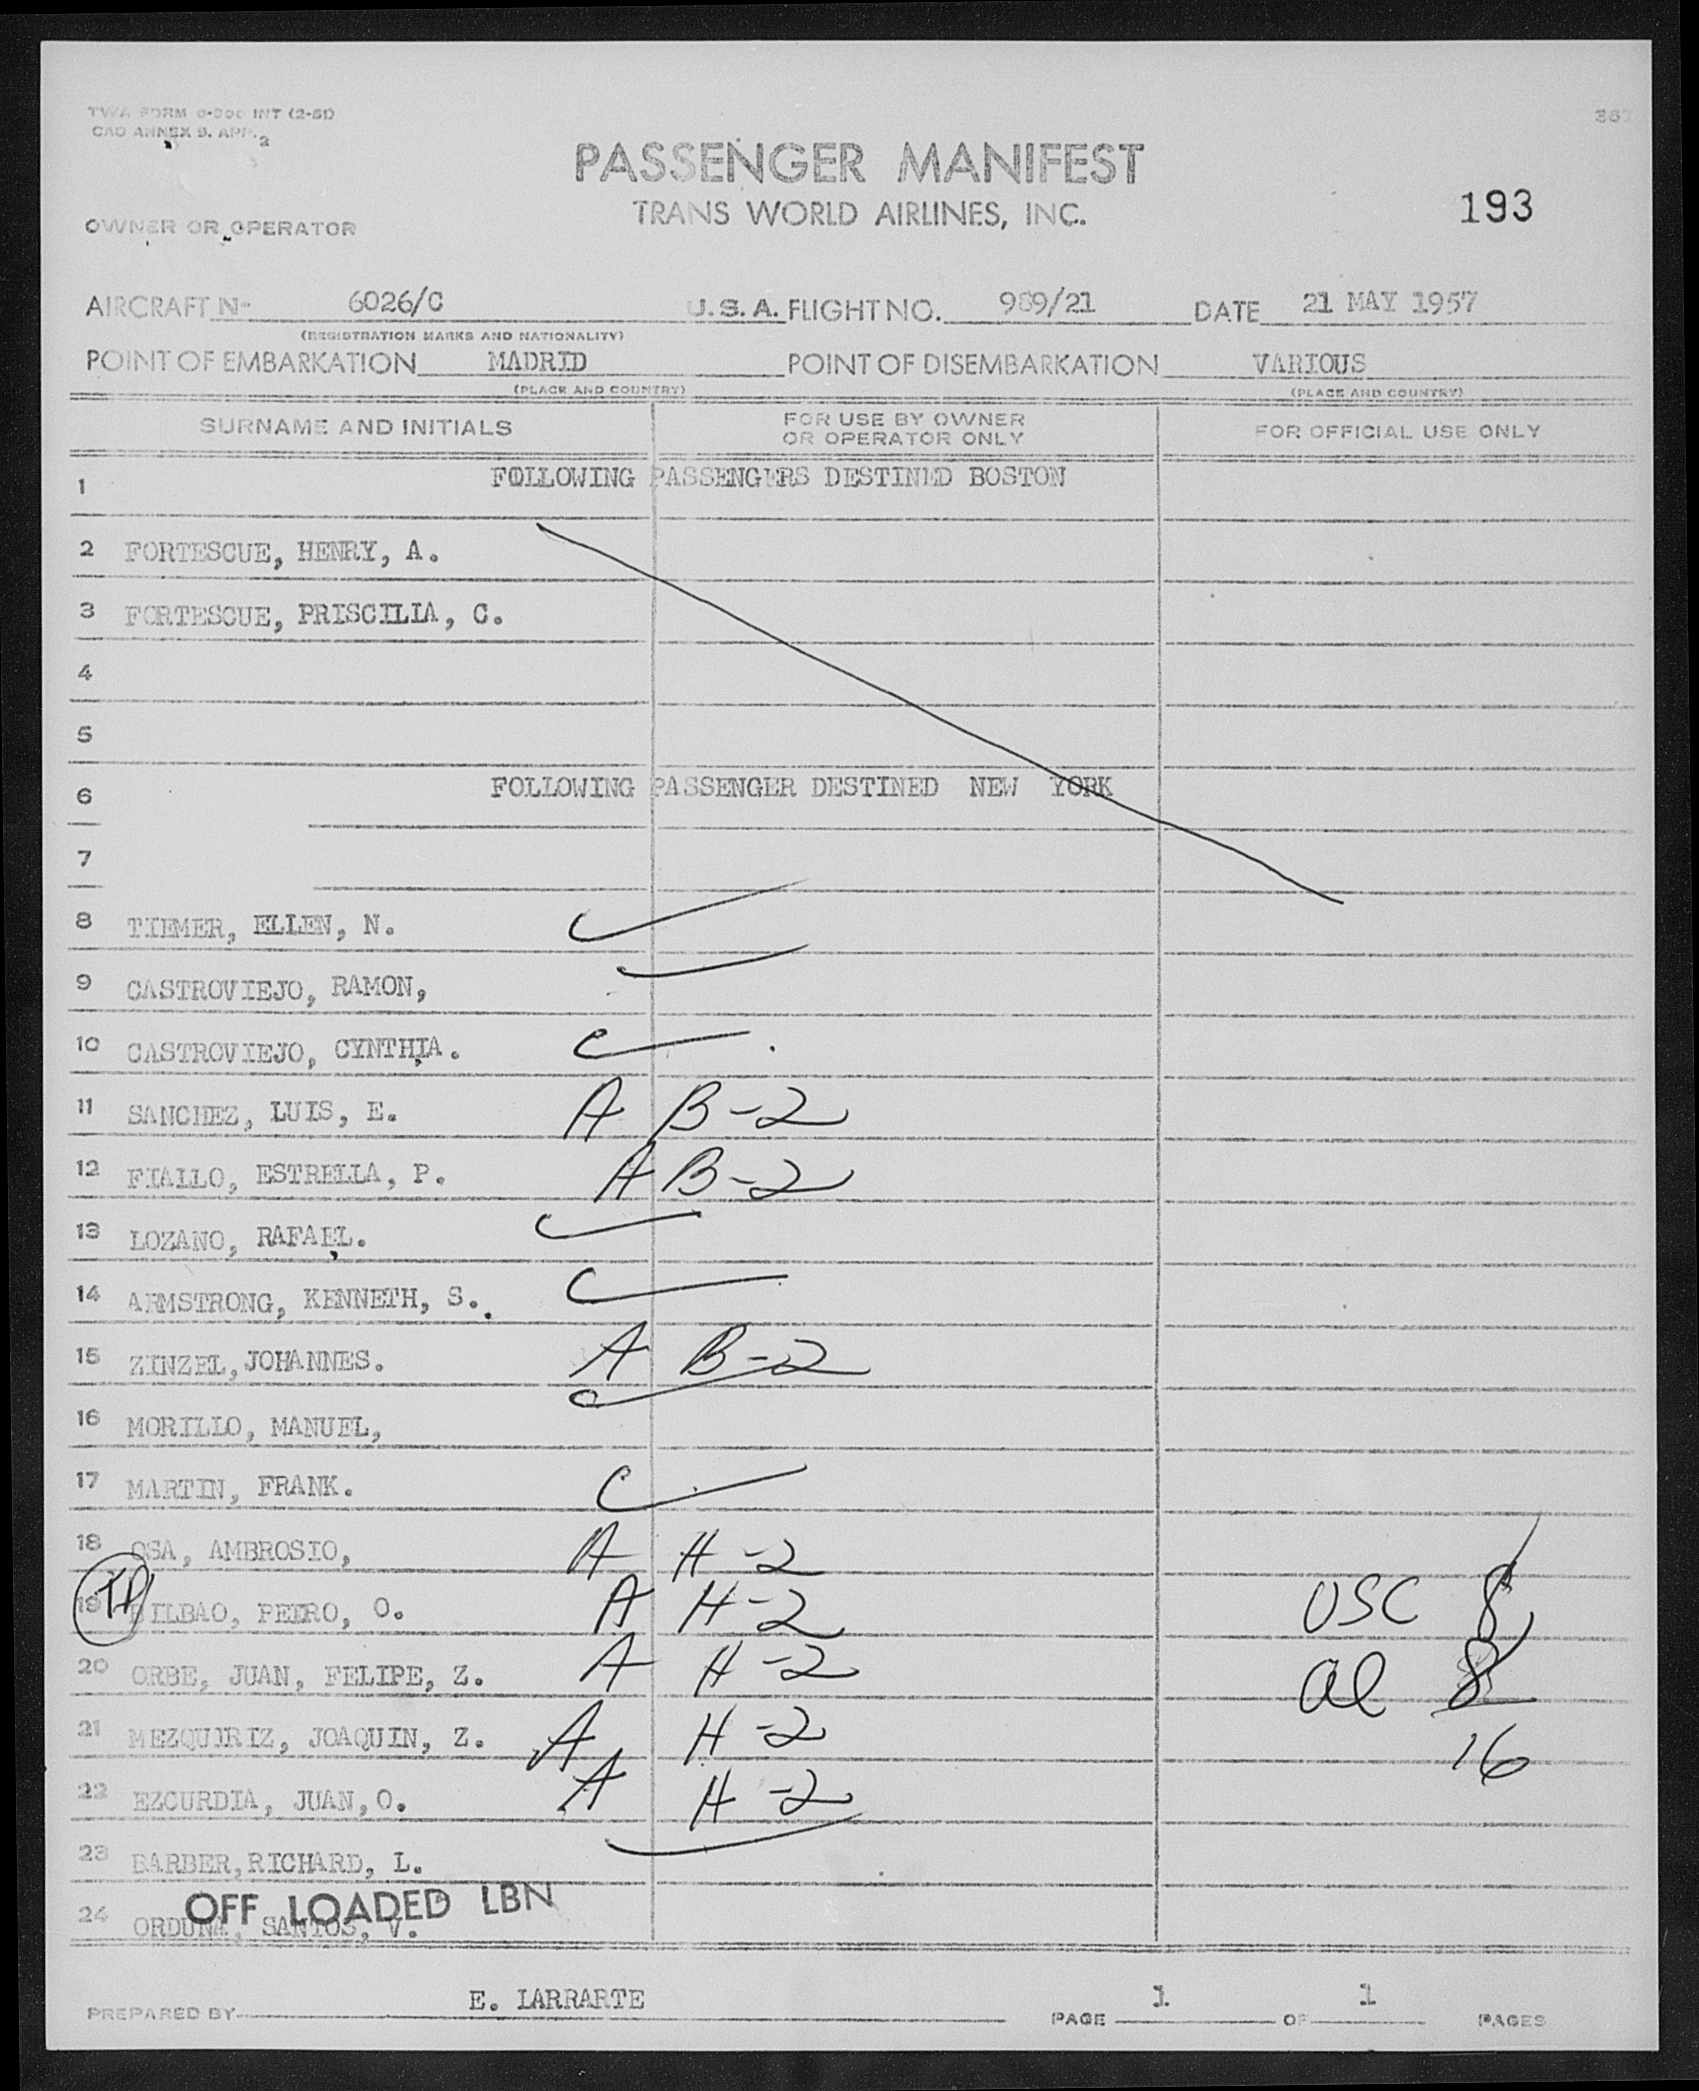 TWA FORM 0-200 INT (2-51)
CAO ANNEX 9. APP. 2
PASSENGER MANIFEST
TRANS WORLD AIRLINES, INC.
193
OWNER OR OPERATOR
AIRCRAFT No 6026/C U.S.A. FLIGHT NO. 989/21 DATE 21 MAY 1957
(REGISTRATION MARKS AND NATIONALITY)
POINT OF EMBARKATION MADRID POINT OF DISEMBARKATION VARIOUS
(PLACE AND COUNTRY) (PLACE AND COUNTRY)
SURNAME AND INITIALS FOR USE BY OWNER OR OPERATOR ONLY FOR OFFICIAL USE ONLY
1 FOLLOWING PASSENGERS DESTINED BOSTON
2 FORTESCUE, HENRY, A.
3 FORTESCUE, PRISCILIA, C.
4
5
6 FOLLOWING PASSENGER DESTINED NEW YORK
7
8 TIEMER, ELLEN, N.
9 CASTROVIEJO, RAMON,
10 CASTROVIEJO, CYNTHIA.
11 SANCHEZ, LUIS, E. A B-2
12 FIALLO, ESTRELLA, P. A B-2
13 LOZANO, RAFAEL.
14 ARMSTRONG, KENNETH, S.
15 ZINZEL, JOHANNES. A B-2
16 MORILLO, MANUEL,
17 MARTIN, FRANK.
18 OSA, AMBROSIO, A H-2
19 BILBAO, PEDRO, O. A H-2 USC 8
20 ORBE, JUAN, FELIPE, Z. A H-2 al 8
21 MEZQUIRIZ, JOAQUIN, Z. A H-2 16
22 EZCURDIA, JUAN, O. A H-2
23 BARBER, RICHARD, L.
OFF LOADED LBN
24 ORDUNA, SANTOS, V.
PREPARED BY E. LARRARTE PAGE 1 OF 1 PAGES